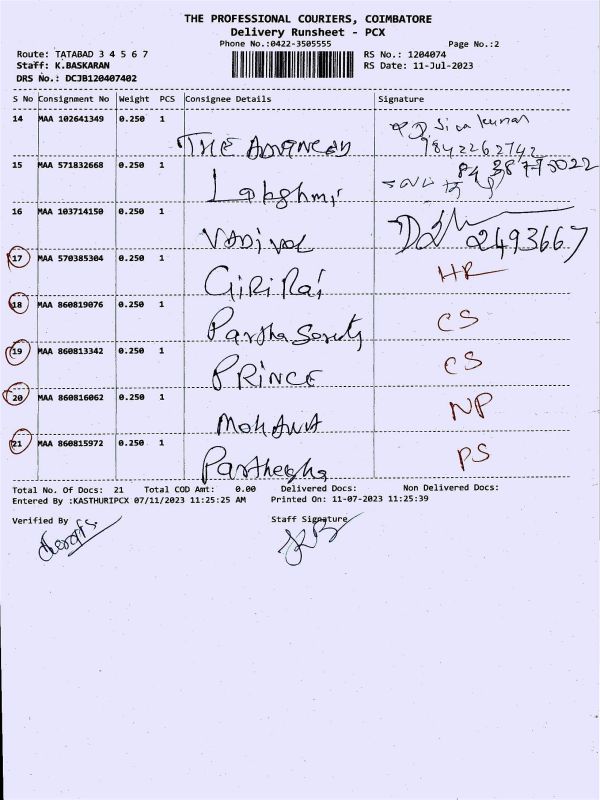 THE PROFESSIONAL COURIERS, COIMBATORE
Delivery Runsheet - PCX
Phone No.:0422-3505555 Page No.:2
Route: TATABAD 3 4 5 6 7 RS No.: 1204074
Staff: K.BASKARAN RS Date: 11-Jul-2023
DRS No.: DCJB120407402
S No Consignment No Weight PCS Consignee Details Signature
14 MAA 102641349 0.250 1
THE ADVANCED Sivakumar
9842262742
15 MAA 571832668 0.250 1
Lakshmi
16 MAA 103714150 0.250 1
VADIVAL 2493667
17 MAA 570385304 0.250 1
GIRI Raj HR
18 MAA 860819076 0.250 1
Partha CS
19 MAA 860813342 0.250 1
PRINCE CS
20 MAA 860816062 0.250 1
MOHANA NP
21 MAA 860815972 0.250 1
PS
Total No. Of Docs: 21 Total COD Amt: 0.00 Delivered Docs: Non Delivered Docs:
Entered By :KASTHURIPCX 07/11/2023 11:25:25 AM Printed On: 11-07-2023 11:25:39
Verified By Staff Signature